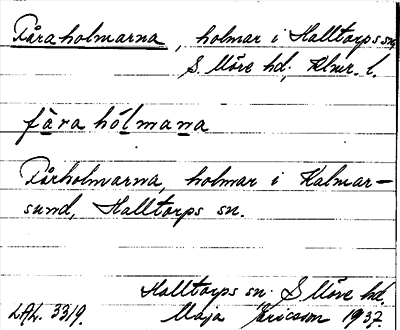 Fåraholmarna, holmar i Halltorps sn,
S. Möre hd, Klmr. l.
fåra hólmana
Fårholmarna, holmar i Kalmar-
sund, Halltorps sn.
Halltorps sn. S. Möre hd.
LAL. 3319. Maja Ericson 1937.